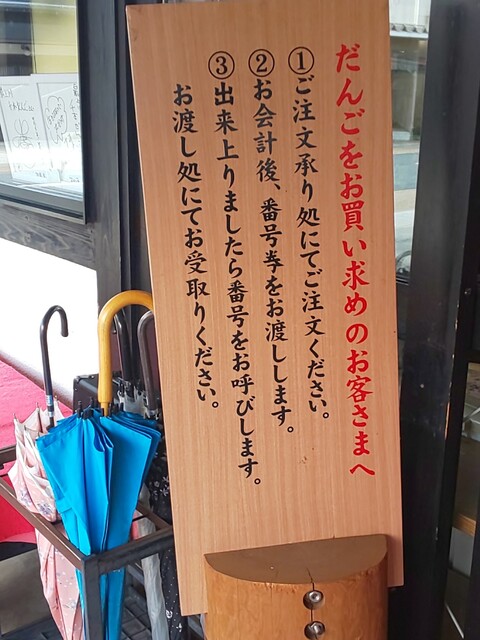 だんごをお買い求めのお客さまへ
①ご注文承り処にてご注文ください。
②お会計後、番号券をお渡しします。
③出来上りましたら番号をお呼びします。
お渡し処にてお受取りください。